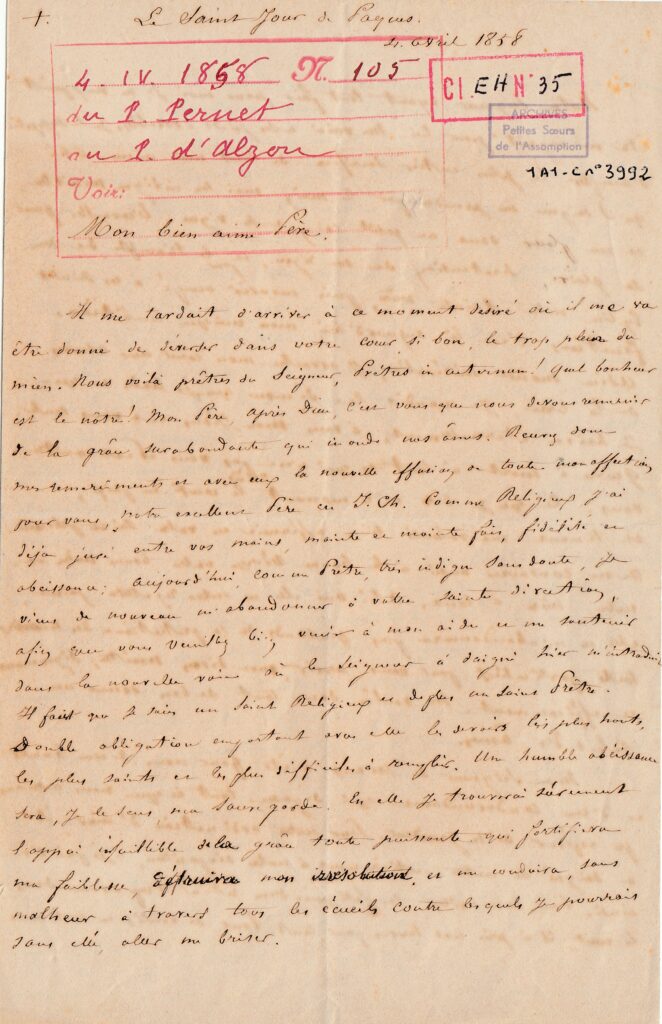 +. Le Saint Jour de Pâques.
4 avril 1858
4. IV. 1858 N. 105
du P. Pernet
au P. d'Alzon
Voir:
Cl. EH N° 35
ARCHIVES
Petites Sœurs
de l'Assomption
1A1-C n° 3992
Mon bien aimé Père.
Il me tardait d'arriver à ce moment désiré où il me va
être donné de déverser dans votre cœur si bon, le trop plein du
mien. Nous voilà prêtres du Seigneur, Prêtres in aeternum! Quel bonheur
est le nôtre! Mon Père, après Dieu, c'est vous que nous devons remercier
de la grâce surabondante qui inonde nos âmes. Recevez donc
mes remerciements et avec eux la nouvelle effusion de toute mon affection
pour vous, notre excellent Père en J. Ch. Comme Religieux j'ai
déjà juré entre vos mains, mainte et mainte fois, fidélité et
obéissance; aujourd'hui, comme Prêtre, très indigne sans doute, je
viens de nouveau m'abandonner à votre sainte direction,
afin que vous veuillez bien venir à mon aide et me soutenir
dans la nouvelle voie où le Seigneur a daigné hier m'introduire
Il faut que je sois un saint Religieux et de plus un saint Prêtre.
Double obligation emportant avec elle les devoirs les plus hauts,
les plus saints et les plus difficiles à remplir. Un humble obéissance
sera, je le sens, ma sauvegarde. En elle je trouverai sûrement
l'appui infaillible de la grâce toute puissante qui fortifiera
ma faiblesse, détruira mon irrésolution, et me conduira, sans
malheur à travers tous les écueils contre lesquels je pourrais
sans elle, aller me briser.